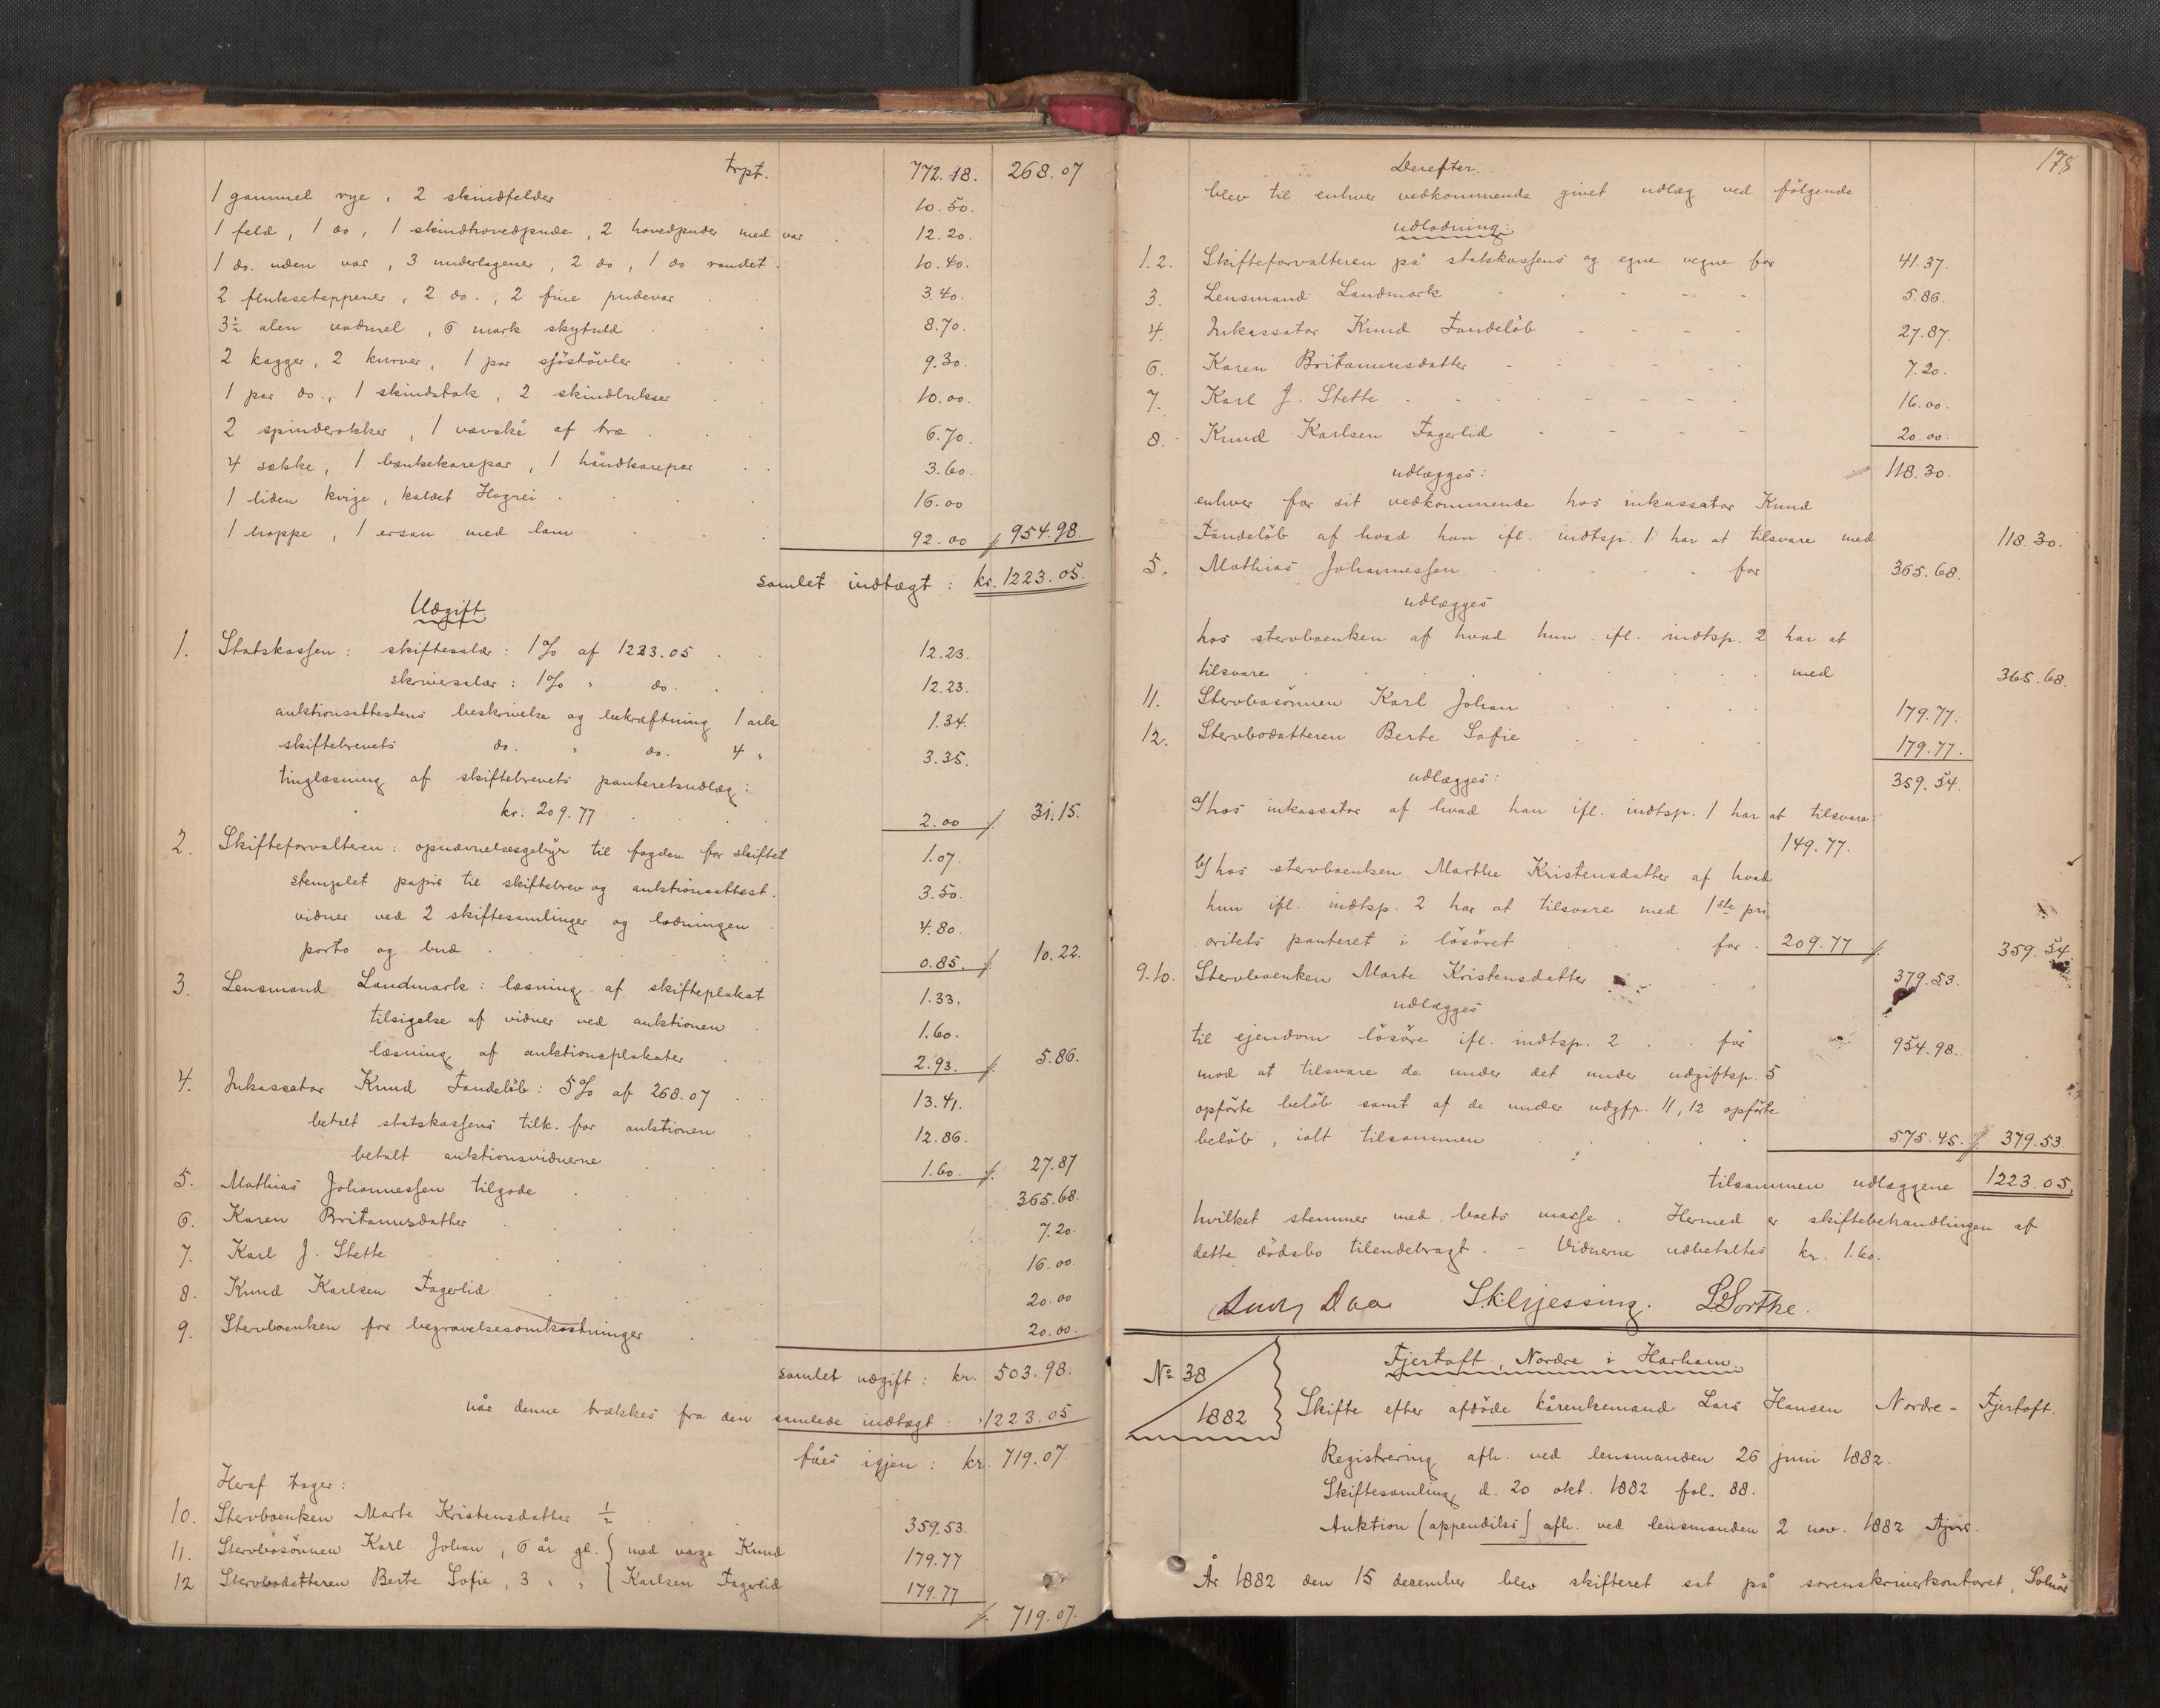 Trpt. 772.18. 268.07
1 gammel rye, 2 skindfelder 10.50.
1 feld, 1 do, 1 skindhovedpude, 2 hovedpuder med var 12.20.
1 do. uden var, 3 underlagener, 2 do, 1 do randet. 10.40.
2 flukseteppener, 2 do., 2 fine pudevar 3.40.
3½ alen vadmel, 6 mark skybuld 8.70.
2 kagger, 2 kurver, 1 par sjöstövler 9.30.
1 par do., 1 skindstak, 2 skindbukser 10.00.
2 spinderokker, 1 vævske af træ 6.70.
4 sække, 1 bænkekarepar, 1 håndkarepar 3.60.
1 liden kvige, kaldet Hagrei 16.00
1 hoppe, 1 ersau med lam 92.00 // 954.98.
samlet indtægt: kr. 1223.05.
Udgift
1. Statskassen: skiftesalær: 1% af 1223.05 12.23.
skriversalær: 1% " do. 12.23.
auktionsattestens beskrivelse og bekræftning 1 ark 1.34.
skiftebrevets do. " do. 4 " 3.35.
tinglæsning af skiftebrevets panteretsudlæg:
kr. 209.77 2.00 // 31.15.
2. Skifteforvalteren: opnævnelsesgebyr til fogden for skiftet 1.07.
stemplet papir til skiftebrev og auktionsattest. 3.50.
vidner ved 2 skiftesamlinger og lodningen 4.80.
porto og bud 0.85. // 10.22.
3. Lensmand Landmark: læsning af skifteplakat 1.33.
tilsigelse af vidner ved auktionen 1.60.
læsning af auktionsplakater 2.93. // 5.86.
4. Inkassator Knud Tandelöb: 5% af 268.07 13.41.
betalt statskassens tilk. for auktionen 12.86.
betalt auktionsvidnerne 1.60. // 27.87
5. Mathias Johannessen tilgode 365.68.
6. Karen Britanusdatter 7.20.
7. Karl J. Stette 16.00.
8. Knud Karlsen Fagerlid 20.00
9. Stervboenken for begravelsesomkostninger 20.00.
samlet udgift: kr. 503.98.
når denne trækkes fra den samlede indtægt: " 1223.05
fåes igjen: kr. 719.07.
Heraf tager:
10. Stervboenken Marte Kristensdatter ½ 359.53.
11. Stervbosönnen Karl Johan, 6 år gl. } med værge Knud 179.77
12 Stervbodatteren Berte Sofie, 3 " " { Karlsen Fagerlid 179.77
// 719.07.
178
Derefter
blev til enhver vedkommende givet udlæg ved fölgende
udlodning:
1.2. Skifteforvalteren på statskassens og egne vegne for 41.37.
3. Lensmand Landmark 5.86.
4. Inkassator Knud Tandelöb 27.87.
6. Karen Britanusdatter 7.20.
7. Karl J. Stette 16.00.
8. Knud Karlsen Fagerlid 20.00.
udlægges: // 118.30.
enhver for sit vedkommende hos inkassator Knud
Tandelöb af hvad han ifl. indtsp. 1 har at tilsvare med 118.30.
5. Mathias Johannessen for 365.68.
udlægges
hos stervboenken af hvad hun ifl. indtsp. 2 har at
tilsvare med 365.68.
11. Stervbosönnen Karl Johan 179.77.
12. Stervbodatteren Berte Sofie 179.77.
udlægges: 359.54.
a) hos inkassator af hvad han ifl. indtsp. 1 har at tilsvare:
149.77.
b) hos stervboenken Marthe Kristensdatter af hvad
hun ifl. indtsp. 2 har at tilsvare med 1ste pri-
oritets panteret i lösöret for 209.77 // 359.54.
9.10. Stervboenken Marte Kristensdatter 379.53.
udlægges
til ejendom lösöre ifl. indtsp. 2 for 954.98.
mod at tilsvare de under det under udgiftsp. 5
opförte belöb samt af de under udgfp. 11, 12 opförte
belöb, ialt tilsammen 575.45. // 379.53.
tilsammen udlæggene 1223.05,
hvilket stemmer med boets masse. Hermed er skiftebehandlingen af
dette dödsbo tilendebragt. - Vidnerne udbetaltes kr. 1.60.
Ludv Daa S.Klyjessing. L Sorthe.
No 38
1882
Fjertoft, Nordre i Harham.
Skifte efter afdöde kårenkemand Lars Hansen Nordre-Fjertoft.
Registrering afh. ved lensmanden 26 juni 1882.
Skiftesamling d. 20 okt. 1882 fol. 88.
Auktion (appendiks) afh. ved lensmanden 2 nov. 1882
År 1882 den 15 december blev skifteret sat på sorenskriverkontoret, Solnör